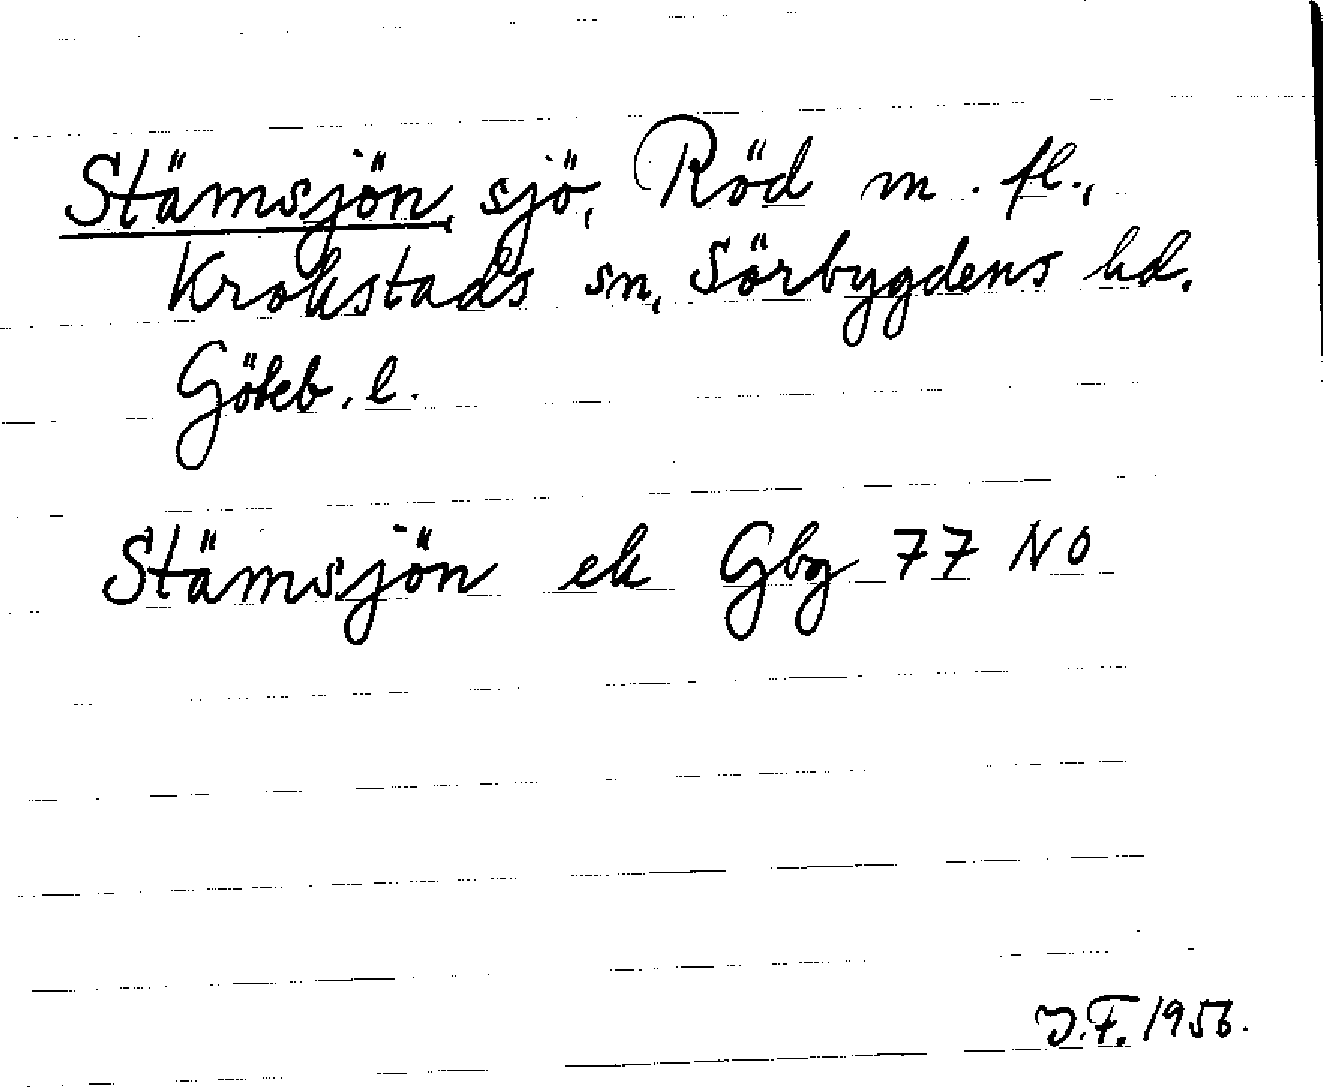 Stämsjön, sjö, Röd m. fl.,
Krokstads sn, Sörbygdens hd.
Göteb. l.
Stämsjön ek Gbg 77 NO
J.F. 1956.